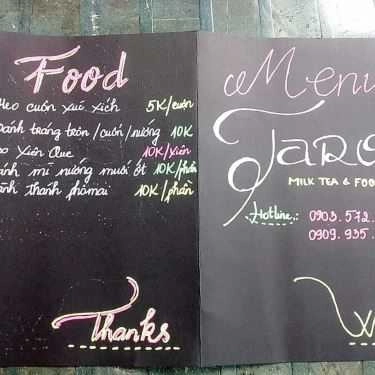 Food
Heo cuốn xúc xích 5K/cuộn
Bánh tráng trộn/cuốn/nướng 10K
Xiên Que 10K/xiên
bánh mì nướng muối ớt 10K/phần
bánh thanh phômai 10K/phần
Thanks
Menu
TARO
MILK TEA & FOO
Hotline: 0903.572.
0909.935.